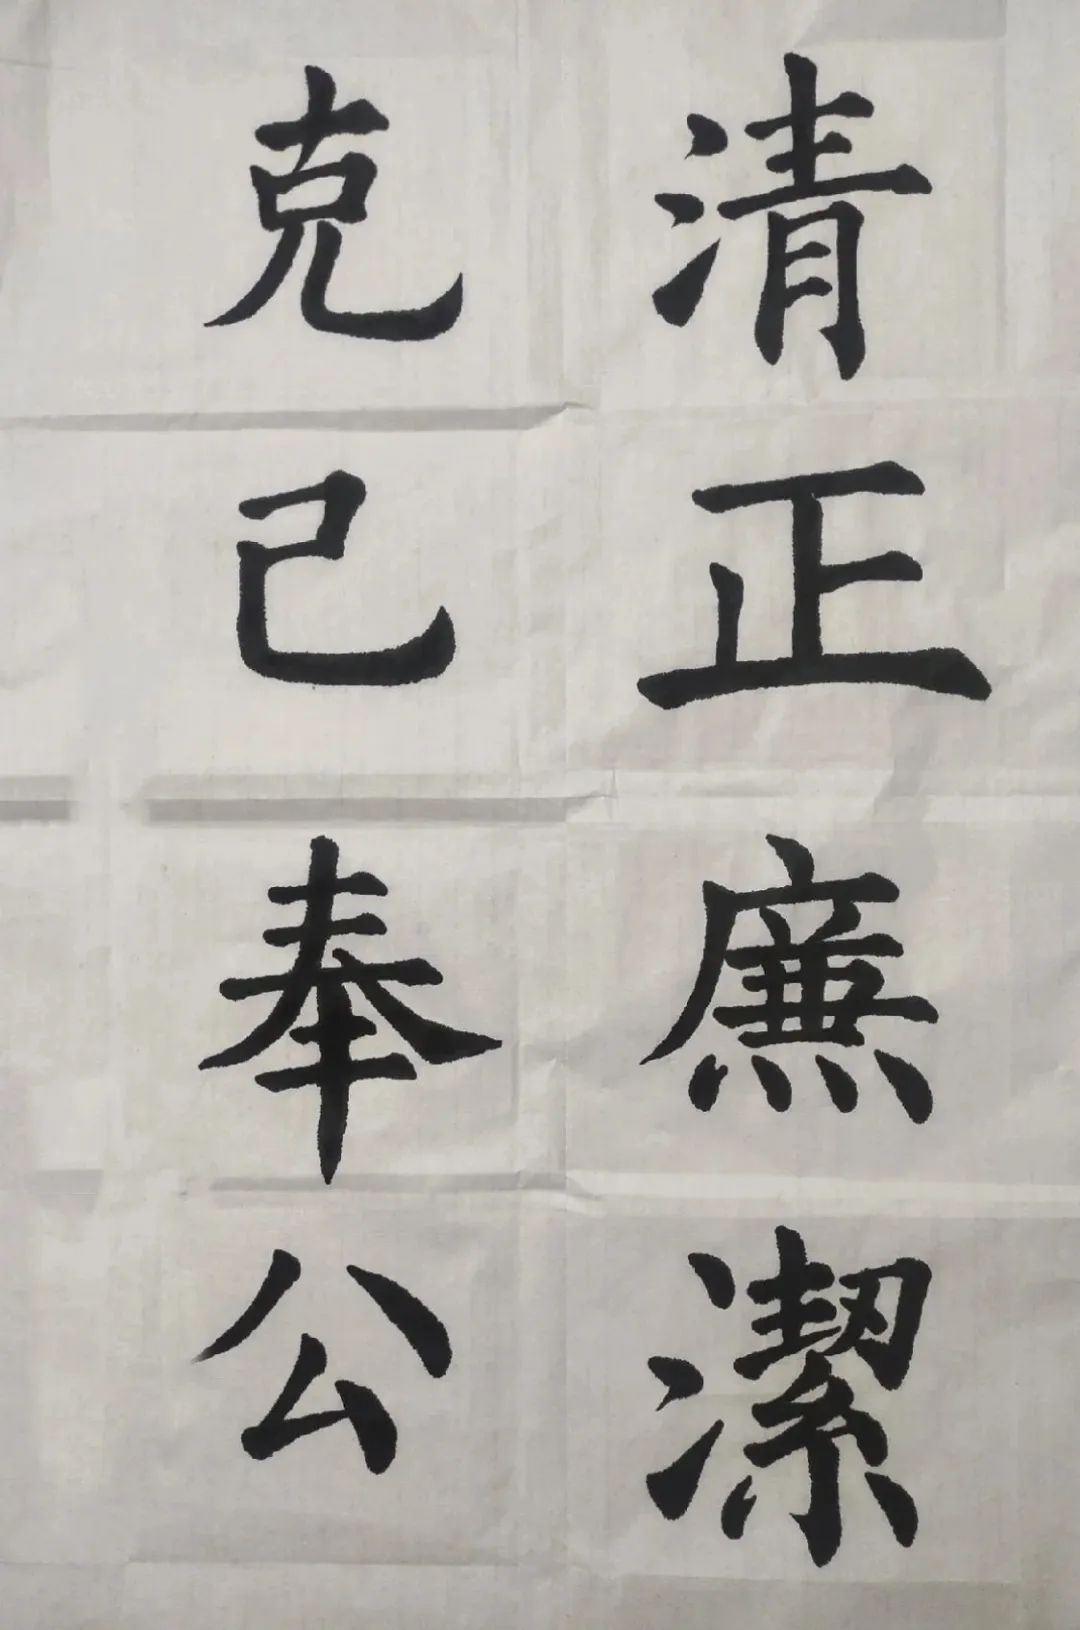 清正廉潔
克己奉公